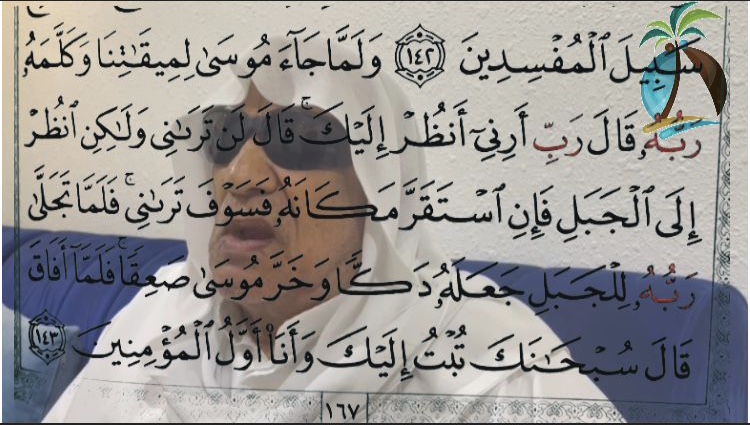 سَبِيلَ ٱلْمُفْسِدِينَ ﴿١٤٢﴾ وَلَمَّا جَآءَ مُوسَىٰ لِمِيقَـٰتِنَا وَكَلَّمَهُۥ
رَبُّهُۥ قَالَ رَبِّ أَرِنِىٓ أَنظُرْ إِلَيْكَ ۚ قَالَ لَن تَرَىٰنِى وَلَـٰكِنِ ٱنظُرْ
إِلَى ٱلْجَبَلِ فَإِنِ ٱسْتَقَرَّ مَكَانَهُۥ فَسَوْفَ تَرَىٰنِى ۚ فَلَمَّا تَجَلَّىٰ
رَبُّهُۥ لِلْجَبَلِ جَعَلَهُۥ دَكًّا وَخَرَّ مُوسَىٰ صَعِقًا ۚ فَلَمَّآ أَفَاقَ
قَالَ سُبْحَـٰنَكَ تُبْتُ إِلَيْكَ وَأَنَا۠ أَوَّلُ ٱلْمُؤْمِنِينَ ﴿١٤٣﴾
١٦٧